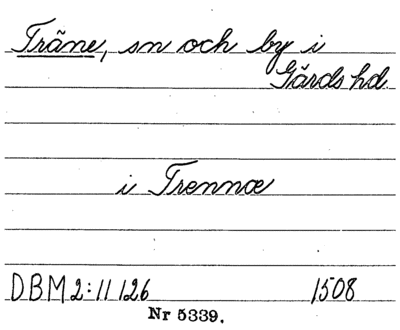 Träne, sn och by i
Gärds hd.
i Trennœ
DBM 2:11 126 1508
Nr 5339.